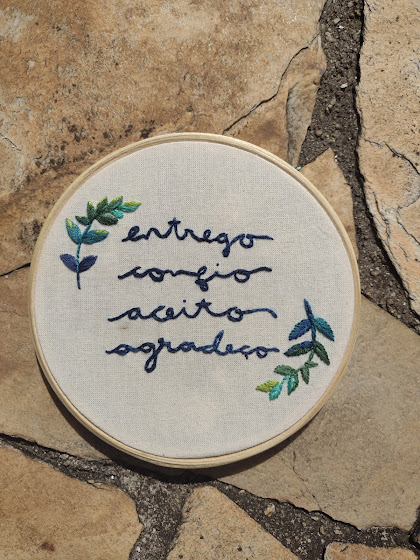 entrego
confio
aceito
agradeço